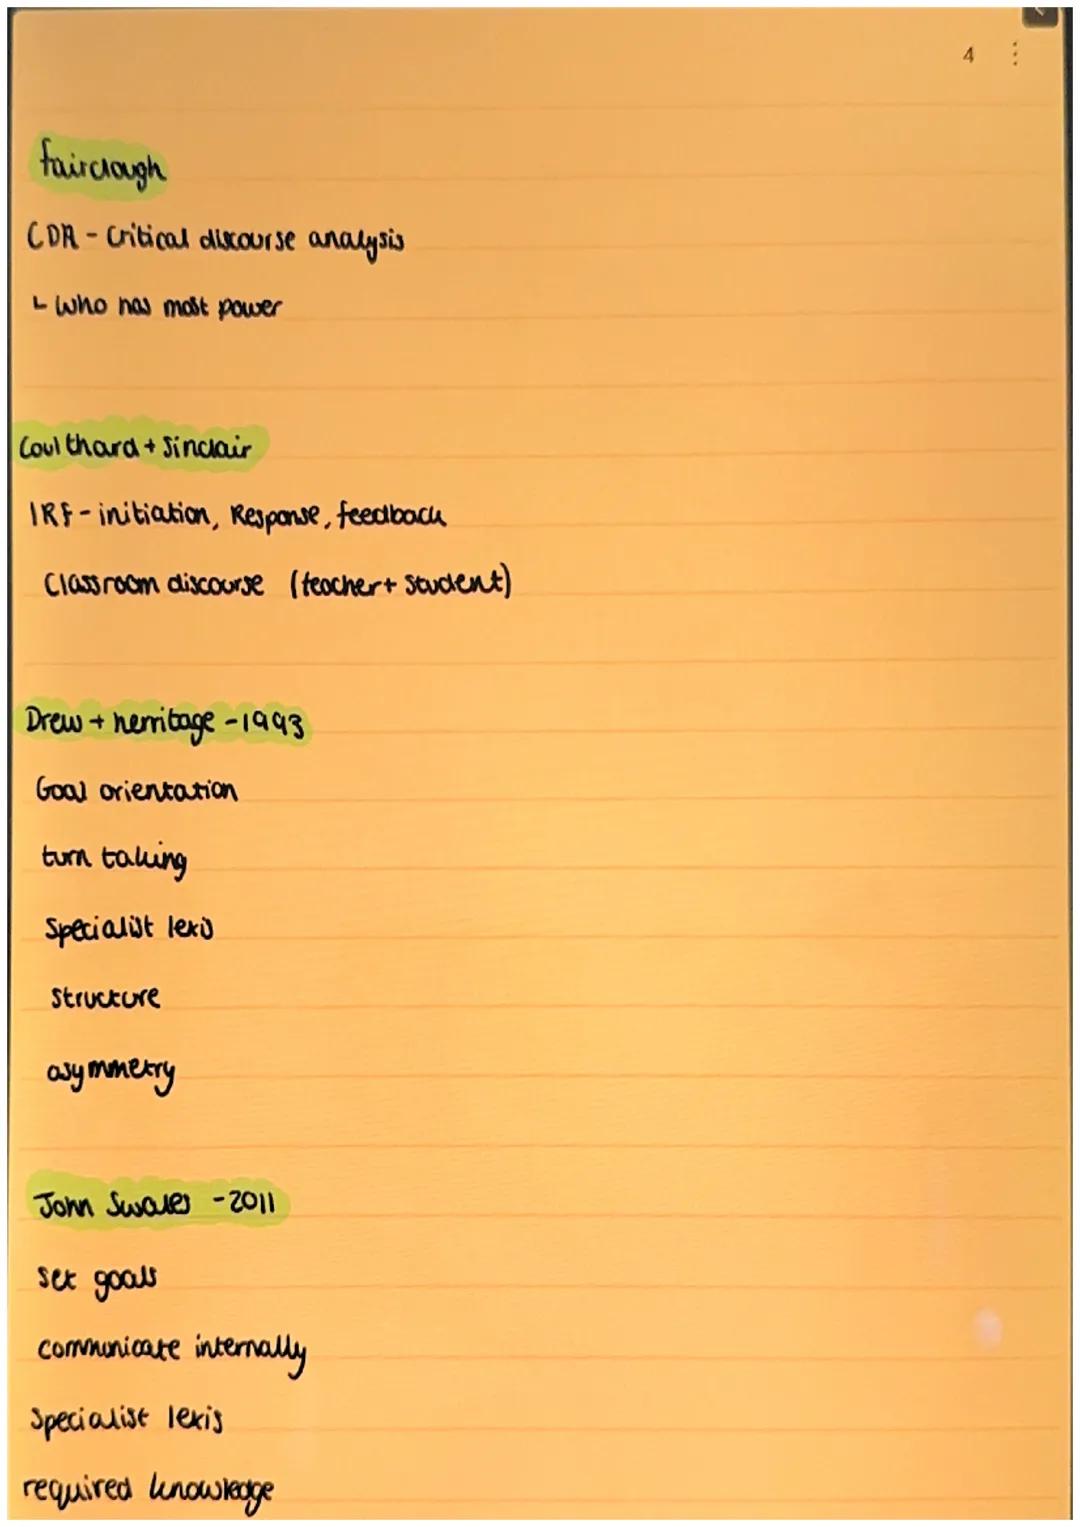 4
fairclough
CDA - Critical discourse analysis
↳ Who has most power
Coulthard + Sinclair
IRF - initiation, Response, feedback
Classroom discourse (teacher + student)
Drew + herritage - 1993
Goal orientation
turn taking
Specialist lexis
structure
asymmetry
John Swales - 2011
set goals
communicate internally
specialist lexis
required knowledge